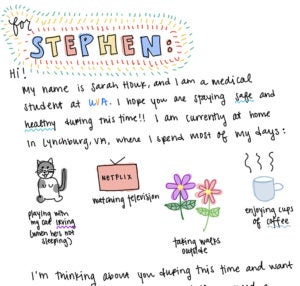 for
STEPHEN:
Hi!
My name is Sarah Houk, and I am a medical
student at UVA. I hope you are staying safe and
healthy during this time!! I am currently at home
in Lynchburg, VA, where I spend most of my days:
NETFLIX
playing with
my cat Irving
(when he's not
sleeping)
watching television
taking walks
outside
enjoying cups
of coffee
I'm thinking about you during this time and want